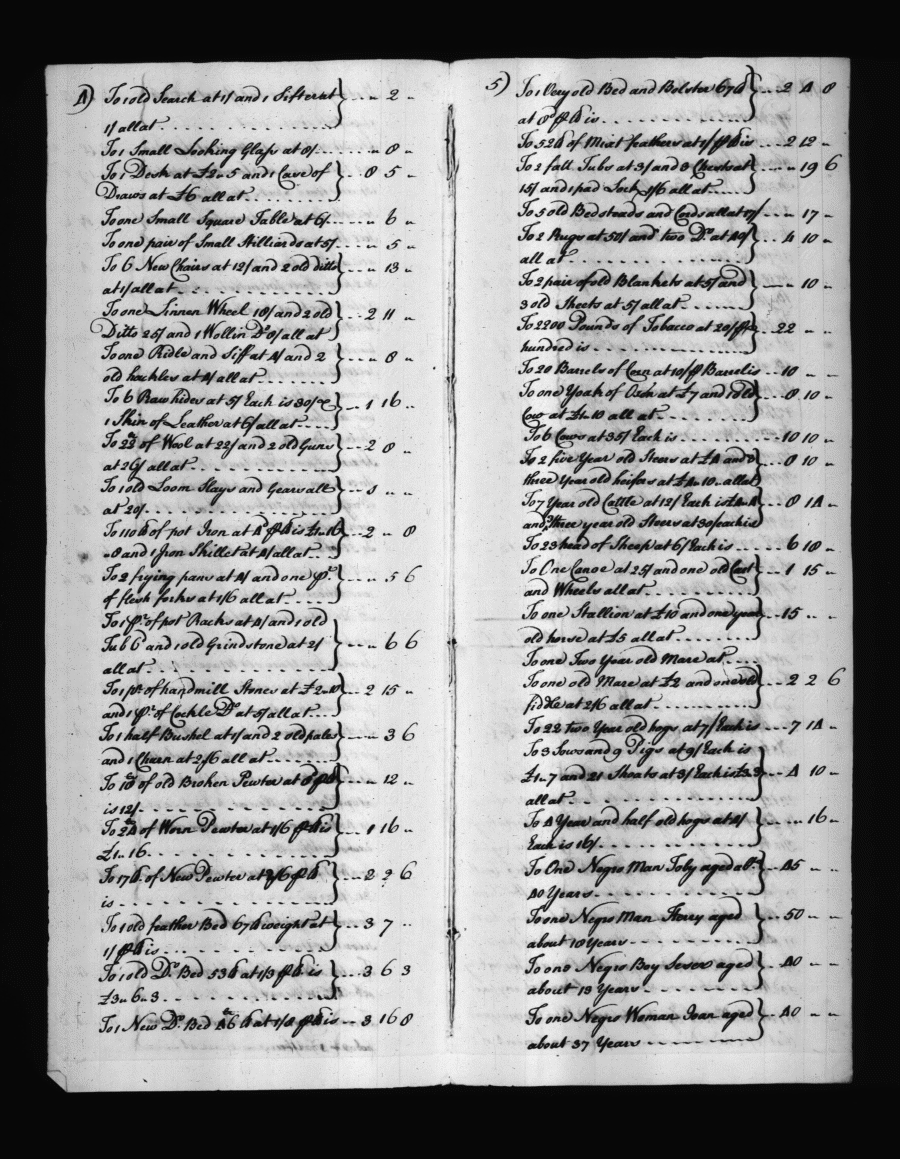 4) To 1 old Search at 1/ and 1 Sifter at } .. " 2 "
1/ all at
To 1 Small Looking Glass at 8/ .... " 8 "
To 1 Desk at £2 " 5 and 1 Case of } .. 8 5 "
Draws at £6 all at
To one Small Square Table at 6/ ... " 6 "
To one pair of Small Stilliards at 5/ ... " 5 "
To 6 New Chairs at 12/ and 2 old ditto } .. " 13 "
at 1/ all at
To one Linnen Wheel 18/ and 2 old } .. 2 11 "
Ditto 25/ and 1 Wollin Do 8/ all at
To one Ridle and Siff at 4/ and 2 } .. " 8 "
old hackles at 4/ all at
To 6 Raw hides at 5/ Each is 30/ & } .. 1 16 "
1 Skin of Leather at 6/ all at
To 22 of Wool at 22/ and 2 old Guns } .. 2 8 "
at 26/ all at
To 1 old Loom Slays and Gears all } .. 1 " "
at 20/
To 110 lb of pot Iron at 4d p lb is £1 " 16 } .. 2 " 8
" 8 and 1 Iron Skillet at 4/ all at
To 2 frying pans at 4/ and one pr } .. " 5 6
of flesh forks at 1/6 all at
To 1 pr of pot Racks at 4/ and 1 old
Tub 6 and 1 old Grindstone at 2/ } .. " 6 6
all at
To 1 pr of handmill Stones at £2 " 10 } .. 2 15 "
and 1 pr of Cockle Do at 5/ all at
To 1 half Bushel at 1/ and 2 old pales } .. " 3 6
and 1 Churn at 2/6 all at
To 18 of old Broken Pewter at 8 p lb } .. " 12 "
is 12/
To 24 of Worn Pewter at 1/6 p lb is } .. 1 16 "
£1 " 16
To 17 lb of New Pewter at 2/6 p lb } .. 2 2 6
is
To 1 old feather Bed 67 lb weight at } .. 3 7 "
1/ p lb is
To 1 old Do Bed 53 lb at 1/3 p lb is } .. 3 6 3
£3 " 6 " 3
To 1 New Do Bed 46 lb at 1/8 p lb is .. 3 16 8
5) To 1 Very old Bed and Bolster 67 lb } ... 2 4 8
at 8d p lb is
To 52 lb of Mixt feathers at 1/ p lb is .. 2 12 "
To 2 fall Tubs at 3/ and 8 Chests at } .. " 19 6
15/ and 1 pad Lock 1/6 all at
To 5 old Bedsteads and Cords all at 17/ .. " 17 "
To 2 Rugs at 50/ and two Do at 40/ } .. 4 10 "
all at
To 2 pair of old Blankets at 5/ and } .. " 10 "
3 old Sheets at 5/ all at
To 2200 Pounds of Tobacco at 20/ p } .. 22 " "
hundred is
To 20 Barrels of Corn at 10/ p Barrel is .. 10 " "
To one Yoak of Oxen at £7 and 1 old } .. 8 10 "
Cow at £1 " 10 all at
To 6 Cows at 35/ Each is .. 10 10 "
To 2 five Year old Steers at £4 and 3 } .. 8 10 "
three Year old heifers at £4 " 10 " all at
To 7 Year old Cattle at 12/ Each is £4 " 4 } .. 8 14 "
and 3 three year old Steers at 30/ each is
To 23 head of Sheep at 6/ Each is .... 6 18 "
To One Canoe at 25/ and one old Cart } .. 1 15 "
and Wheels all at
To one Stallion at £10 and one year } .. 15 " "
old horse at £5 all at
To one Two Year old Mare at
To one old Mare at £2 and one old } .. 2 2 6
fiddle at 2/6 all at
To 22 two Year old hogs at 7/ Each is .. 7 14 "
To 3 Sows and 9 Pigs at 9/ Each is
£1 " 7 and 21 Shoats at 3/ Each is £3 " 3 } .. 4 10 "
all at
To 4 Year and half old hogs at 4/ } .. " 16 "
Each is 16/
To One Negro Man Toby aged abt } .. 45 " "
40 Years
To one Negro Man Harry aged } .. 50 " "
about 18 Years
To one Negro Boy aged } .. 40 " "
about 13 Years
To one Negro Woman Joan aged } .. 40 " "
about 37 Years